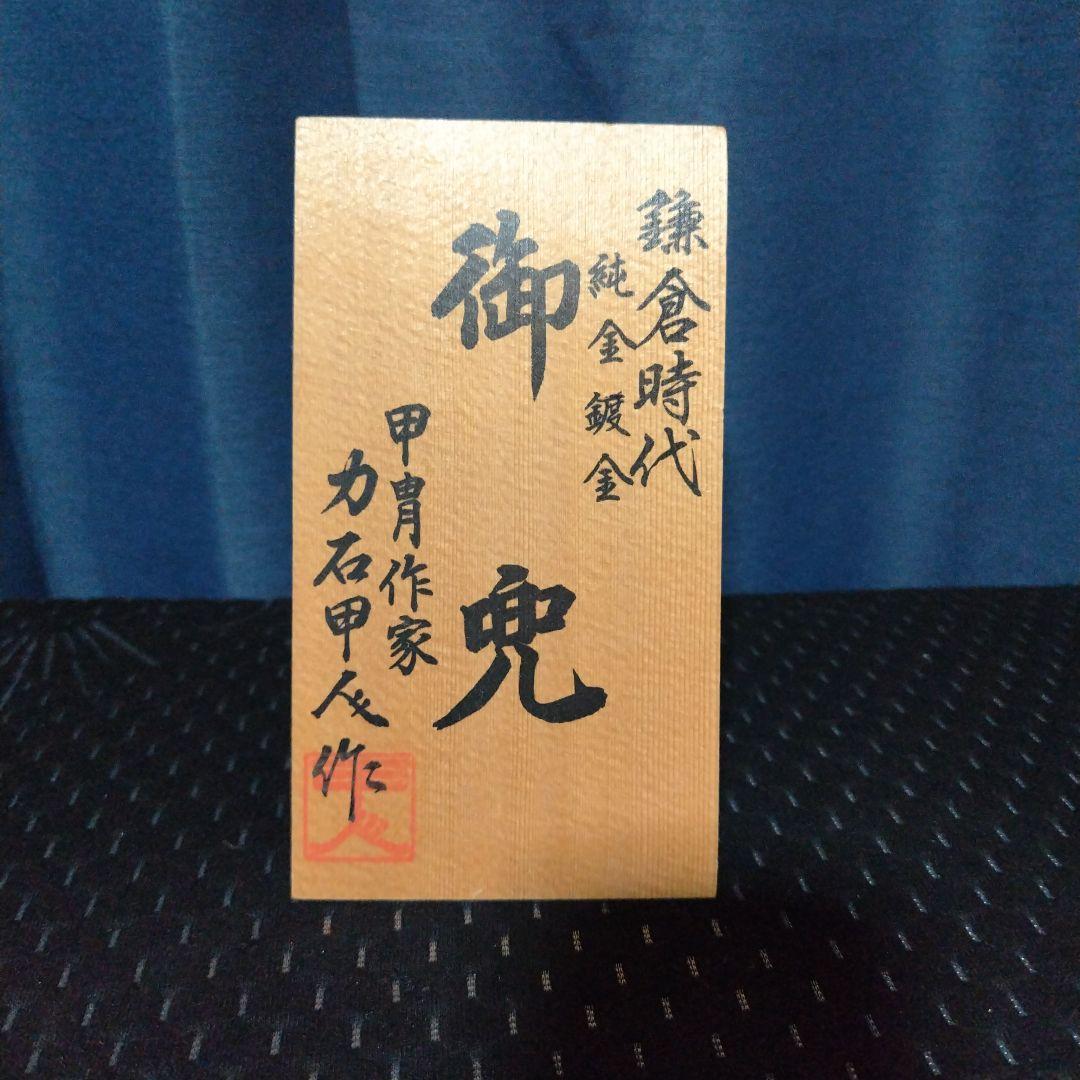 鎌倉時代
純金鍍金
御兜
甲冑作家
力石甲人作